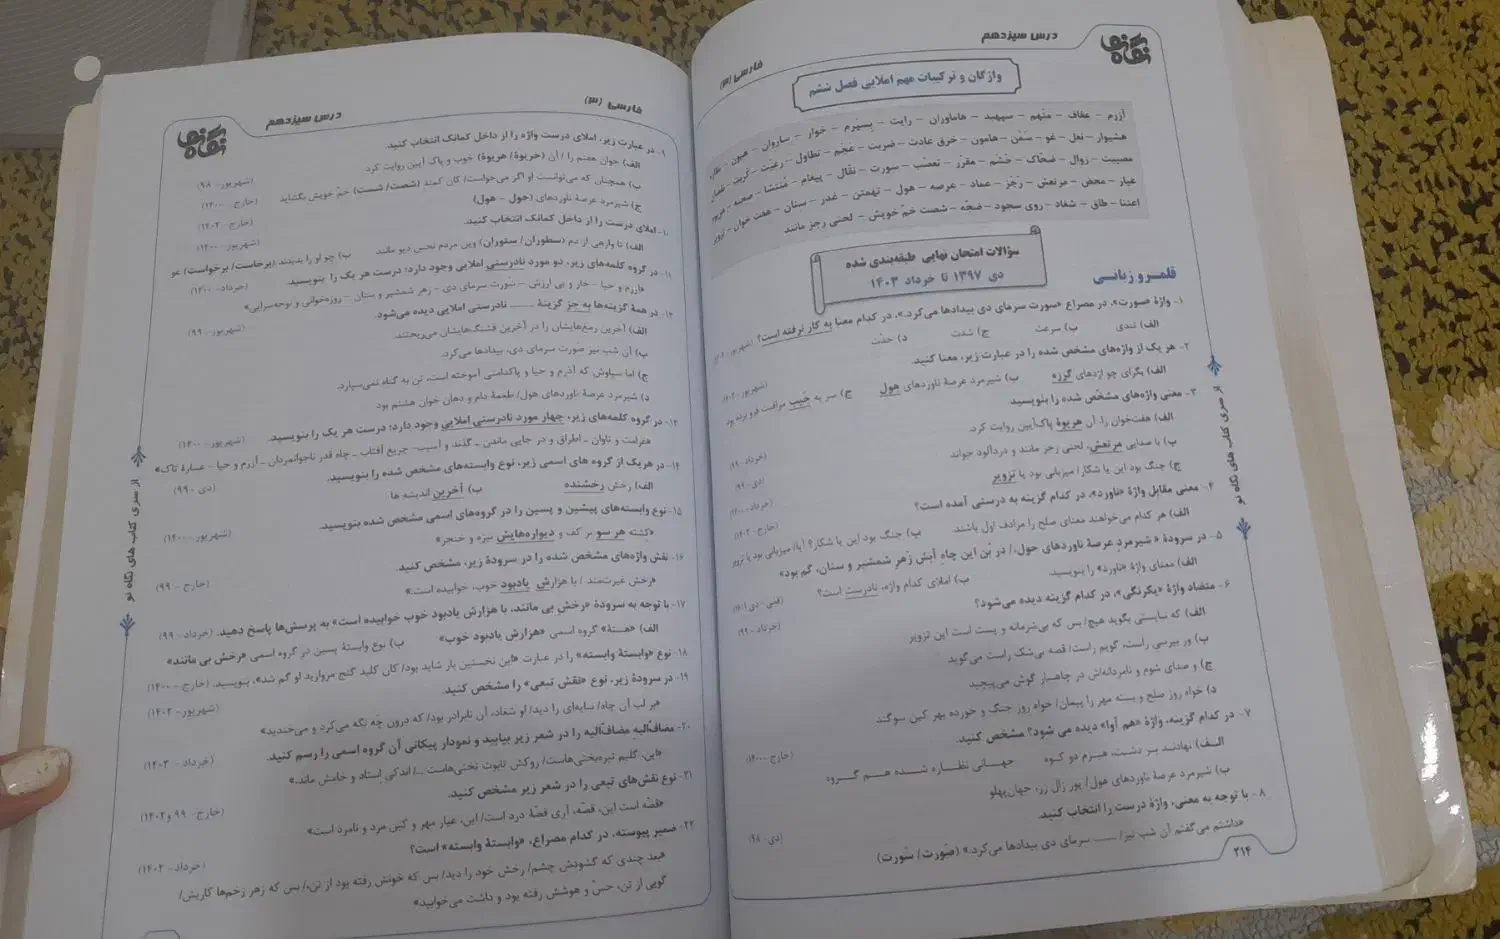 درس سیزدهم
فارسی (۳)
نگاه نو
واژگان و ترکیبات مهم املایی فصل ششم
آزرم – عفاف – متهم – سپهبد – هاماوران – رایت – بسپرم – خوار – ساروان – هیون –
هشیوار – نعل – غو – سمن – هامون – خرق عادت – ضربت – عجم – تطاول – رعیت – کربت –
مصیبت – زوال – ضحاک – خشم – مقرر – تعصب – سورت – نقال – پیغام – منتشا – صحنه – هریوه
عیار – محض – مرتعش – رجز – عماد – عرصه – هول – تهمتن – غدر – سنان – هفت خوان – تزویر
اعتنا – طاق – شغاد – روی سجود – ضجه – شصت خم خویش – لحنی رجز مانند
سؤالات امتحان نهایی طبقه‌بندی شده
دی ۱۳۹۷ تا خرداد ۱۴۰۳
قلمرو زبانی
۱- واژهٔ «صورت»، در مصراع «سورت سرمای دی بیدادها می‌کرد.»، در کدام معنا به کار نرفته است؟
الف) تندی ب) سرعت ج) شدت د) حدّت
۲- هر یک از واژه‌های مشخص شده را در عبارت زیر، معنا کنید.
الف) بگرای چو اژدهای گرزه ب) شیرمرد عرصهٔ ناوردهای هول ج) سر به جیب مراقبت فرو برده بود.
۳- معنی واژه‌های مشخّص شده را بنویسید
الف) هفت‌خوان را، آن هریوهٔ پاک‌آیین روایت کرد. (خرداد- ۹۹)
ب) با صدایی مرتعش، لحنی رجز مانند و دردآلود خواند (دی- ۹۹)
ج) جنگ بود این یا شکار/ میزبانی بود یا تزویر (خرداد- ۱۴۰۰)
۴- معنی مقابل واژهٔ «ناورد»، در کدام گزینه به درستی آمده است؟ (خارج- ۱۴۰۲)
الف) هر کدام می‌خواهند معنای صلح را مرادف اول باشند ب) جنگ بود این یا شکار؟ آیا/ میزبانی بود یا تزویر
۵- در سرودهٔ « شیرمرد عرصهٔ ناوردهای حول،/ در بُن این چاهِ آبش زهر شمشیر و سنان، گم بود»
الف) معنای واژهٔ «ناورد» را بنویسید. ب) املای کدام واژه، نادرست است؟
۶- متضاد واژهٔ «یکرنگی»، در کدام گزینه دیده می‌شود؟ (خرداد- ۹۹)
الف) که نبایستی بگوید هیچ/ بس که بی‌شرمانه و پست است این تزویر
ب) ور بپرسی راست، گویم راست/ قصه بی‌شک راست می‌گوید
ج) و صدای شوم و نامردانه‌اش در چاهسار گوش می‌پیچید
د) خواه روز صلح و بسته مهر را پیمان/ خواه روز جنگ و خورده بهر کین سوگند
۷- در کدام گزینه، واژهٔ «هم آوا» دیده می شود؟ مشخص کنید. (خارج- ۱۴۰۰)
الف) نهادند بر دشت، هیزم دو کوه جهانی نظاره شده هم گروه
ب) شیرمرد عرصهٔ ناوردهای هول/ پور زال زر، جهان‌پهلو
۸- با توجه به معنی، واژهٔ درست را انتخاب کنید. (دی- ۹۸)
«داشتم می‌گفتم آن شب نیز/ ...... سرمای دی بیدادها می‌کرد.» (صورت/ سورت)
۳۱۴
از سری کتاب های نگاه نو
فارسی (۳)
درس سیزدهم
نگاه نو
۹- در عبارت زیر، املای درست واژه را از داخل کمانک انتخاب کنید.
الف) خوان هفتم را / آن (حریوهٔ/ هریوهٔ) خوب و پاک آیین روایت کرد (شهریور- ۹۸)
ب) همچنان که می‌توانست او اگر می‌خواست/ کان کمند (شصت/ شست) خمّ خویش بگشاید (خارج- ۱۴۰۰)
ج) شیرمرد عرصهٔ ناوردهای (حول – هول) (خارج- ۱۴۰۲)
۱۰- املای درست را از داخل کمانک انتخاب کنید. (شهریور- ۱۴۰۰)
الف) تا وارهی از دم (سطوران/ ستوران) وین مردم نحس دیو مانند ب) چو او را بدیدند (برخاست/ برخواست) غو
۱۱- در گروه کلمه‌های زیر، دو مورد نادرستی املایی وجود دارد؛ درست هر یک را بنویسید. (خرداد- ۱۴۰۰)
«ازرم و حیا – خار و بی ارزش – صورت سرمای دی – زهر شمشیر و سنان – روزه‌خوانی و نوحه‌سرایی»
۱۲- در همهٔ گزینه‌ها به جز گزینهٔ ...... نادرستی املایی دیده می‌شود. (شهریور- ۹۹)
الف) آخرین رمغ‌هایشان را در آخرین فشنگ‌هایشان می‌ریختند.
ب) آن شب نیز صورت سرمای دی، بیدادها می‌کرد.
ج) اما سیاوش که آذرم و حیا و پاکدامنی آموخته است، تن به گناه نمی‌سپارد.
د) شیرمرد عرصهٔ ناوردهای هول/ طعمهٔ دام و دهان خوان هشتم بود
۱۳- در گروه کلمه‌های زیر، چهار مورد نادرستی املایی وجود دارد؛ درست هر یک را بنویسید. (شهریور- ۱۴۰۰)
«غرامت و تاوان – اطراق و در جایی ماندن – گذند و آسیب- جریغ آفتاب – چاه قدر ناجوانمردان – آزرم و حیا – عسارهٔ تاک»
۱۴- در هریک از گروه های اسمی زیر، نوع وابسته‌های مشخص شده را بنویسید. (دی- ۹۹)
الف) رخش رخشنده ب) آخرین اندیشه ها
۱۵- نوع وابسته‌های پیشین و پسین را در گروه‌های اسمی مشخص شده بنویسید. (شهریور- ۱۴۰۰)
«کِشته هر سو بر کف و دیواره‌هایش نیزه و خنجر»
۱۶- نقش واژه‌های مشخص شده را در سرودهٔ زیر، مشخص کنید. (خارج- ۹۹)
«رخش غیرت‌مند / با هزارش یادبود خوب، خوابیده است.»
۱۷- با توجه به سرودهٔ «رخش بی مانند، با هزارش یادبود خوب خوابیده است» به پرسش‌ها پاسخ دهید. (خرداد- ۹۹)
الف) «هستهٔ» گروه اسمی «هزارش یادبود خوب» ب) نوع وابستهٔ پسین در گروه اسمی «رخش بی مانند»
۱۸- نوع «وابستهٔ وابسته» را در عبارت «این نخستین بار شاید بود/ کان کلید گنج مروارید او گم شد»، بنویسید. (خارج- ۱۴۰۰)
۱۹- در سرودهٔ زیر، نوع «نقش تبعی» را مشخص کنید. (شهریور- ۱۴۰۲)
«بر لب آن چاه/ سایه‌ای را دید/ او شغاد، آن نابرادر بود/ که درون چَه نگه می‌کرد و می‌خندید»
۲۰- مضافٌ‌الیهِ مضافٌ‌الیه را در شعر زیر بیابید و نمودار پیکانی آن گروه اسمی را رسم کنید. (خرداد- ۱۴۰۳)
«این، گلیم تیره‌بختی‌هاست/ روکش تابوت تختی‌هاست .../ اندکی اِستاد و خامش ماند.»
۲۱- نوع نقش‌های تبعی را در شعر زیر مشخص کنید. (خارج- ۹۹ و ۱۴۰۲)
«قصّه است این، قصّه، آری قصّهٔ درد است/ این، عیار مهر و کین مرد و نامرد است»
۲۲- ضمیر پیوسته، در کدام مصراع، «وابستهٔ وابسته» است؟ (خرداد- ۱۴۰۳)
«بعد چندی که گشودش چشم/ رخش خود را دید/ بس که خونش رفته بود از تن،/ بس که زهر زخم‌ها کاریش/
گویی از تن، حسّ و هوشش رفته بود و داشت می‌خوابید»
از سری کتاب های نگاه نو